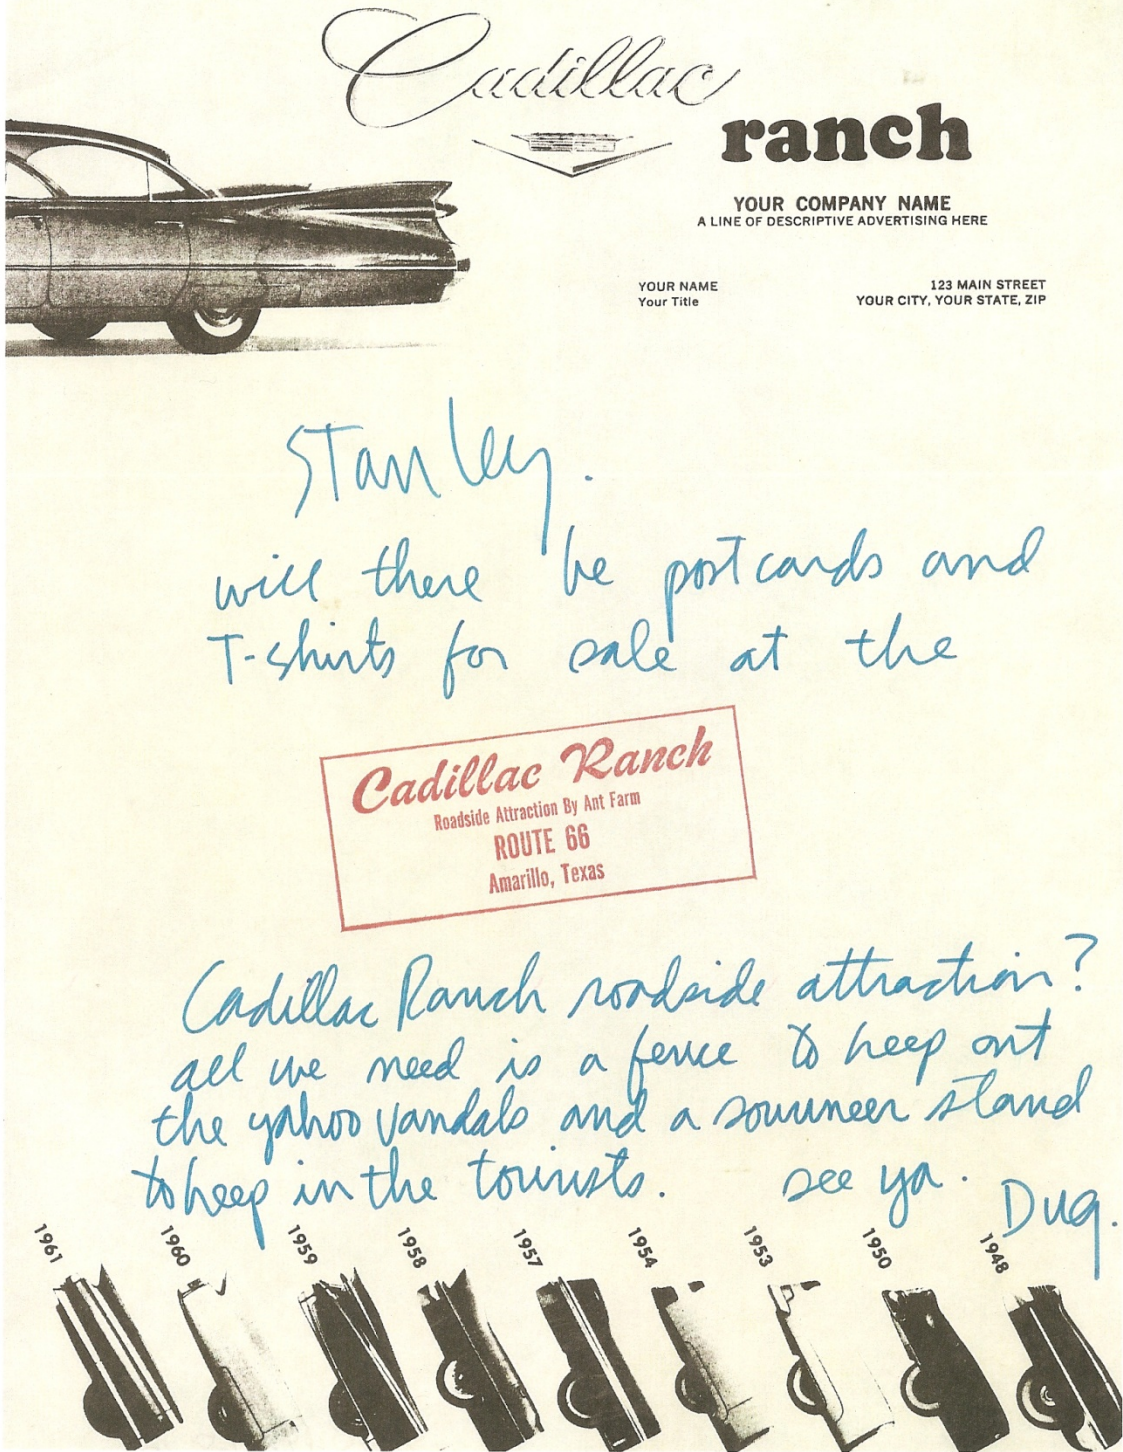 Cadillac
ranch
YOUR COMPANY NAME
A LINE OF DESCRIPTIVE ADVERTISING HERE
YOUR NAME
Your Title
123 MAIN STREET
YOUR CITY, YOUR STATE, ZIP
Stanley.
will there be postcards and
T-shirts for sale at the
Cadillac Ranch
Roadside Attraction By Ant Farm
ROUTE 66
Amarillo, Texas
Cadillac Ranch roadside attraction?
all we need is a fence to keep out
the yahoo vandals and a souvuneer stand
to keep in the tourists. see ya. Dug.
1961 1960 1959 1958 1957 1954 1953 1950 1948